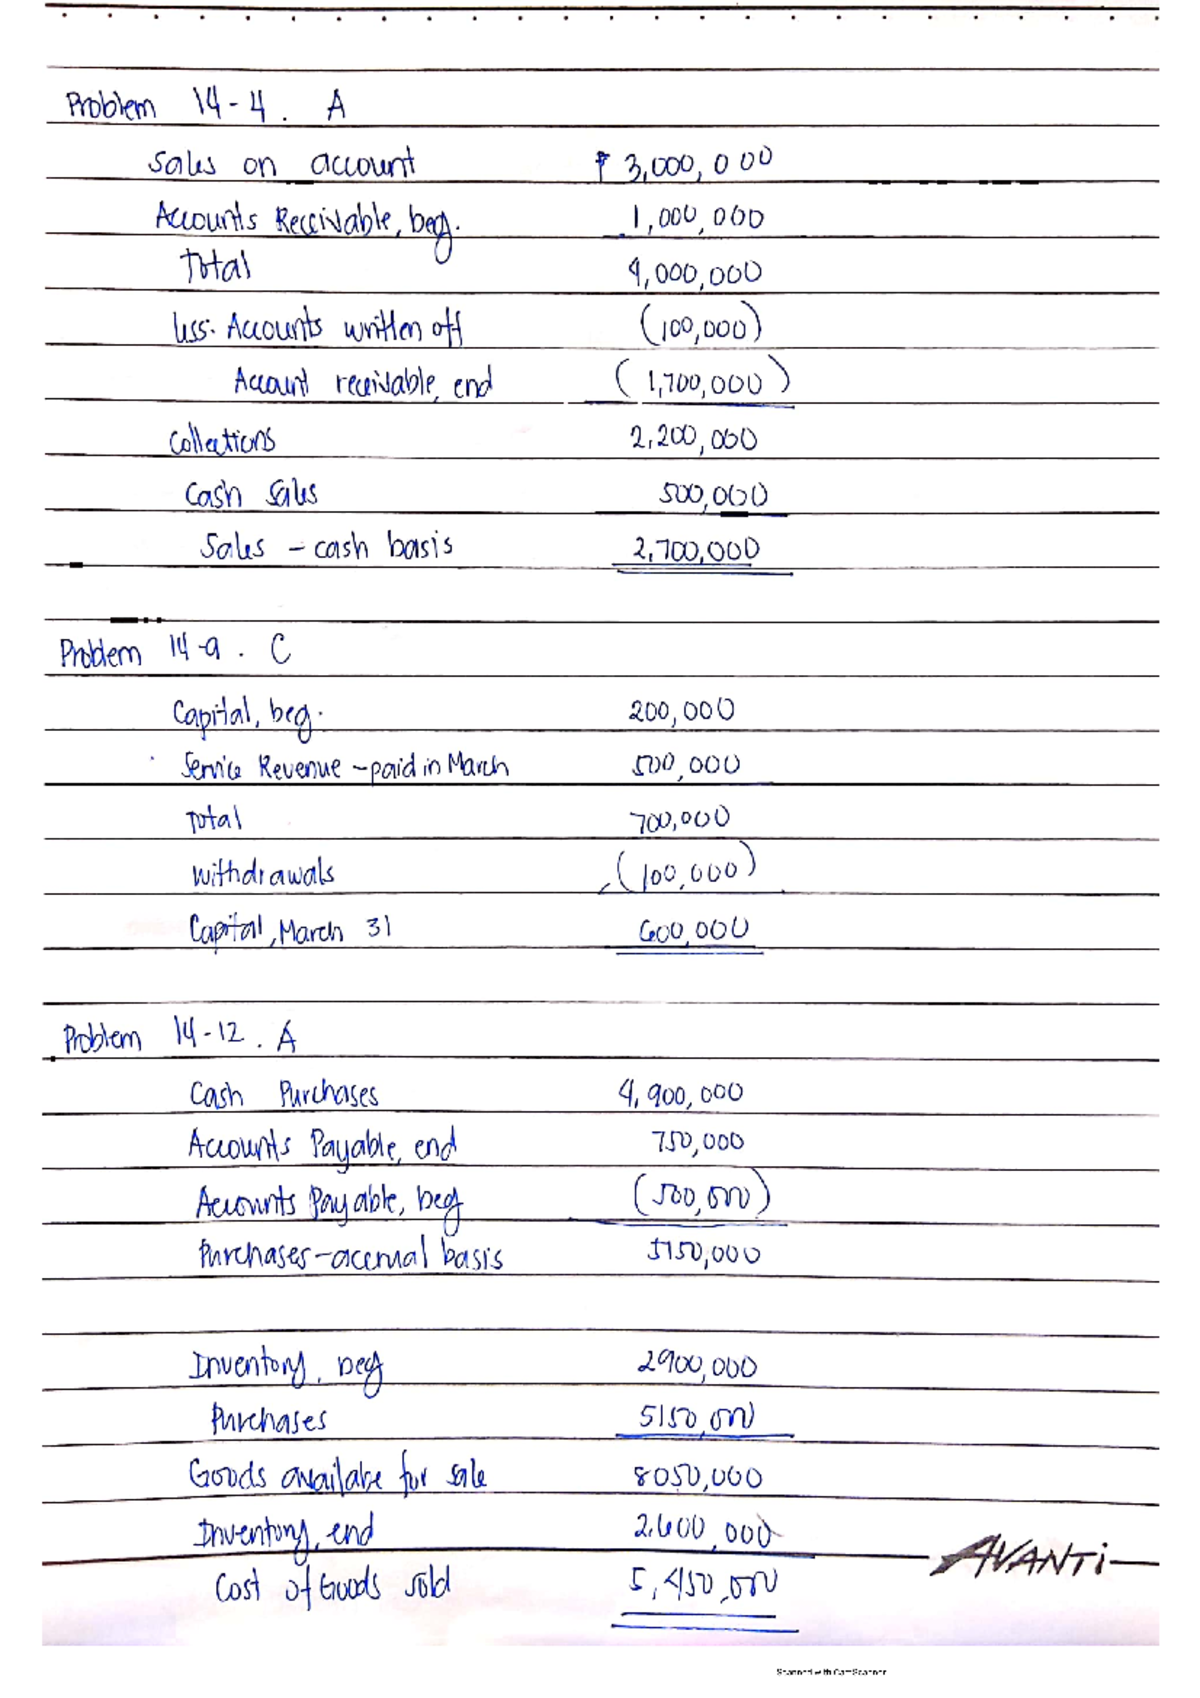 Problem 14-4. A
Sales on account ₱ 3,000,000
Accounts Receivable, beg. 1,000,000
Total 4,000,000
Less: Accounts written off (100,000)
Account receivable, end (1,700,000)
Collections 2,200,000
Cash Sales 500,000
Sales - cash basis 2,700,000
Problem 14-9. C
Capital, beg. 200,000
Service Revenue - paid in March 500,000
Total 700,000
Withdrawals (100,000)
Capital, March 31 600,000
Problem 14-12. A
Cash Purchases 4,900,000
Accounts Payable, end 750,000
Accounts Payable, beg (500,000)
Purchases - accrual basis 5150,000
Inventory, beg 2900,000
Purchases 5150,000
Goods availabe for sale 8050,000
Inventory, end 2,600,000
Cost of Goods sold 5,450,000
AVANTi
Scanned with CamScanner